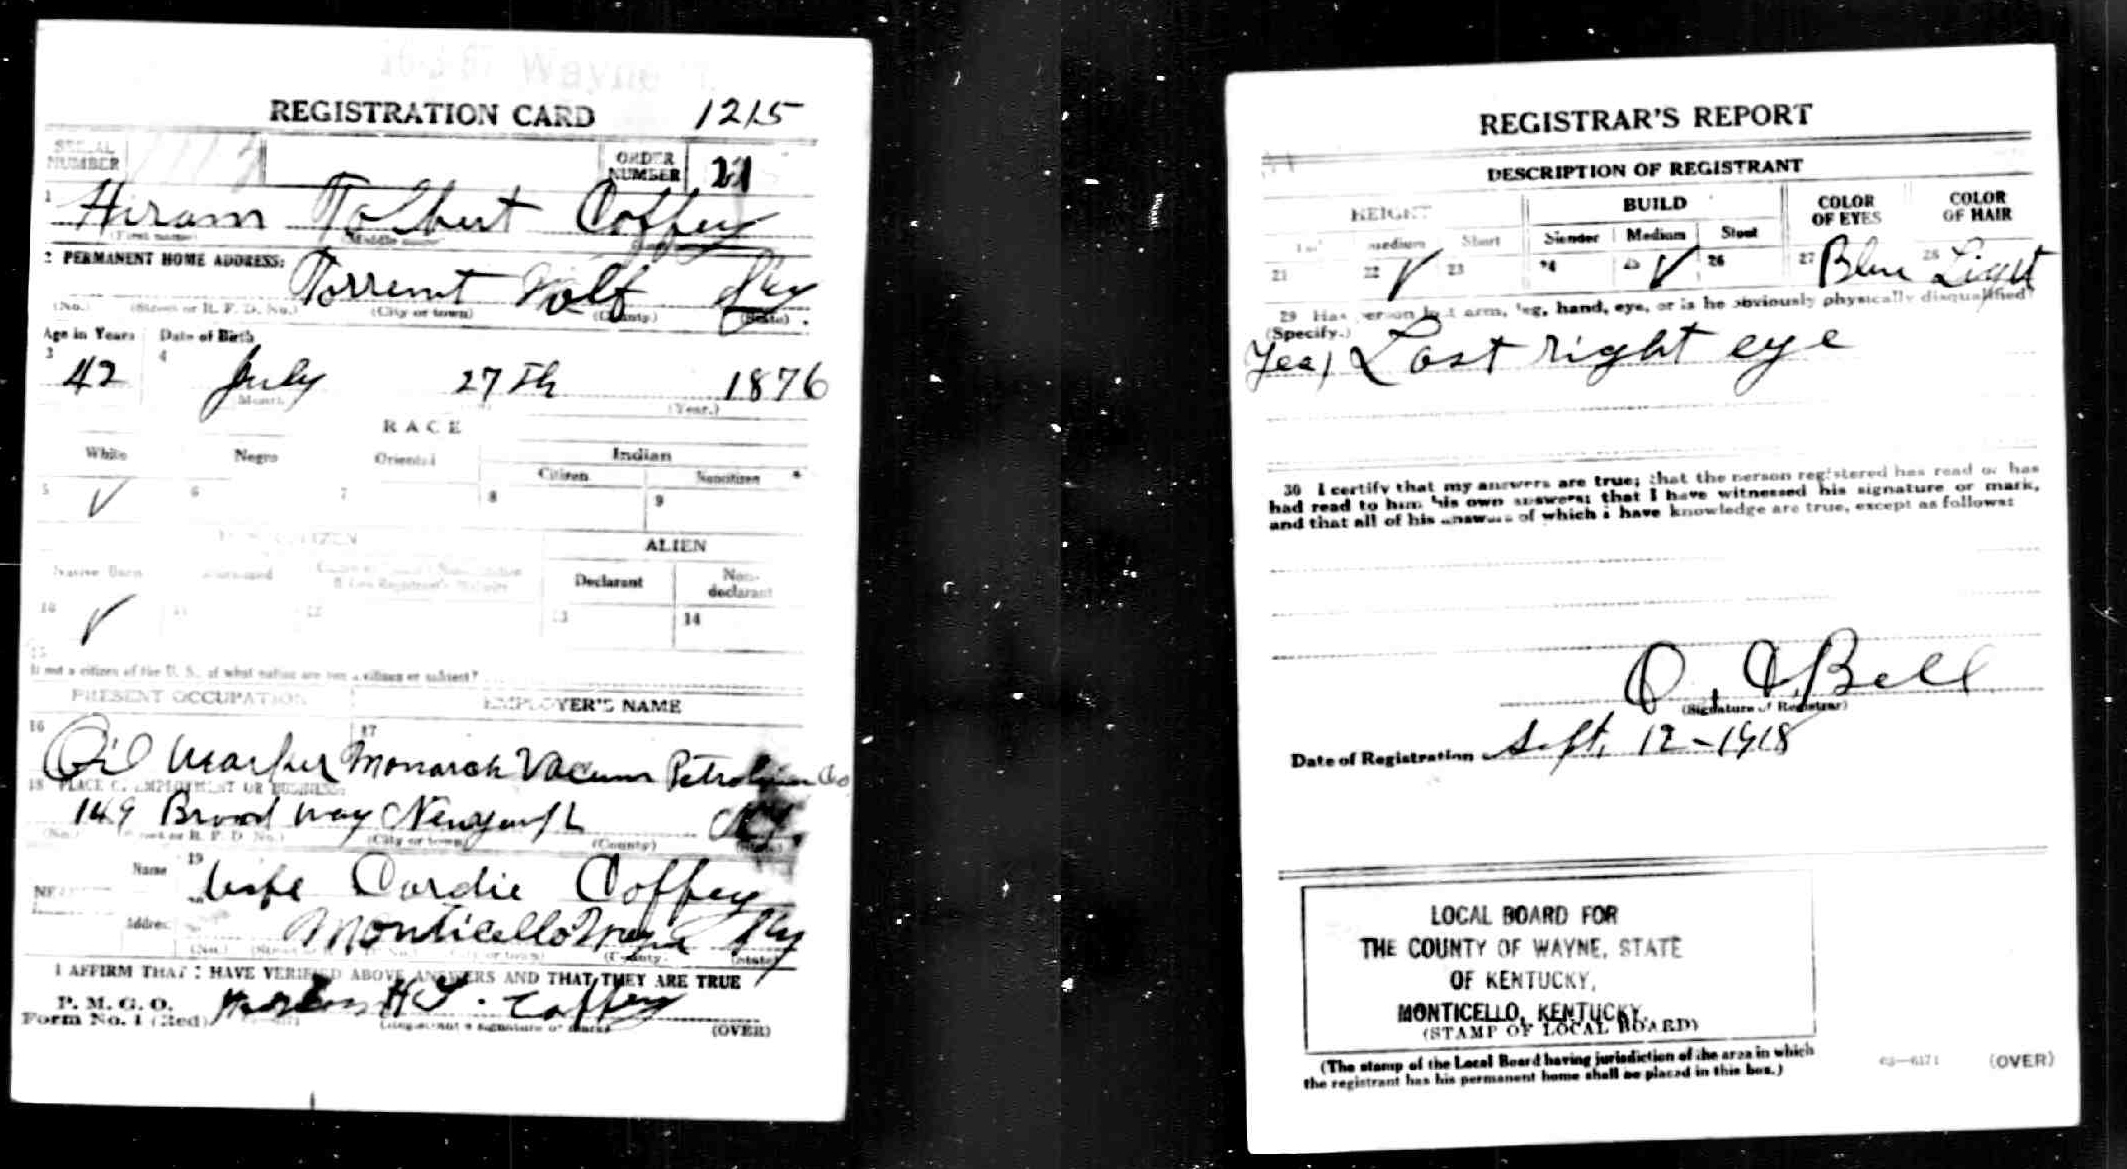 Wayne
REGISTRATION CARD 1215
SERIAL NUMBER ORDER NUMBER 21
1 Hiram Tolbert Coffey
(First name) (Middle name)
2 PERMANENT HOME ADDRESS:
Torrent Wolf Ky
(No.) (Street or R. F. D. No.) (City or town) (County) (State)
Age in Years Date of Birth
3 4
42 July 27th 1876
(Month) (Year.)
RACE
White Negro Oriental Indian
Citizen Noncitizen
5 ✓ 6 7 8 9
CITIZEN ALIEN
Native Born Declarant Non-declarant
10 ✓ 11 12 13 14
15
If not a citizen of the U. S., of what nation are you a citizen or subject?
PRESENT OCCUPATION EMPLOYER'S NAME
16 17
Oil Worker Monarch Vacuum Petroleum Co
18 PLACE OF EMPLOYMENT OR BUSINESS:
149 Broad way New York N.Y.
(No.) (Street or R. F. D. No.) (City or town) (County) (State)
Name 19 wife Cordie Coffey
Address Monticello Wayne Ky
(No.) (City or town) (County) (State)
I AFFIRM THAT I HAVE VERIFIED ABOVE ANSWERS AND THAT THEY ARE TRUE
P. M. G. O.
Form No. 1 (Red) H T. Coffey
(Registrant's signature or mark) (OVER)
REGISTRAR'S REPORT
DESCRIPTION OF REGISTRANT
HEIGHT BUILD COLOR OF EYES COLOR OF HAIR
Tall Medium Short Slender Medium Stout
21 22 ✓ 23 24 25 ✓ 26 27 Blue 28 Light
29 Has person lost arm, leg, hand, eye, or is he obviously physically disqualified?
(Specify.)
Yes, Lost right eye
30 I certify that my answers are true; that the person registered has read or has
had read to him his own answers; that I have witnessed his signature or mark,
and that all of his answers of which I have knowledge are true, except as follows:
O. C. Bell
(Signature of Registrar)
Date of Registration Sept. 12-1918
LOCAL BOARD FOR
THE COUNTY OF WAYNE, STATE
OF KENTUCKY,
MONTICELLO, KENTUCKY.
(STAMP OF LOCAL BOARD)
(The stamp of the Local Board having jurisdiction of the area in which
the registrant has his permanent home shall be placed in this box.)
03—6171 (OVER)